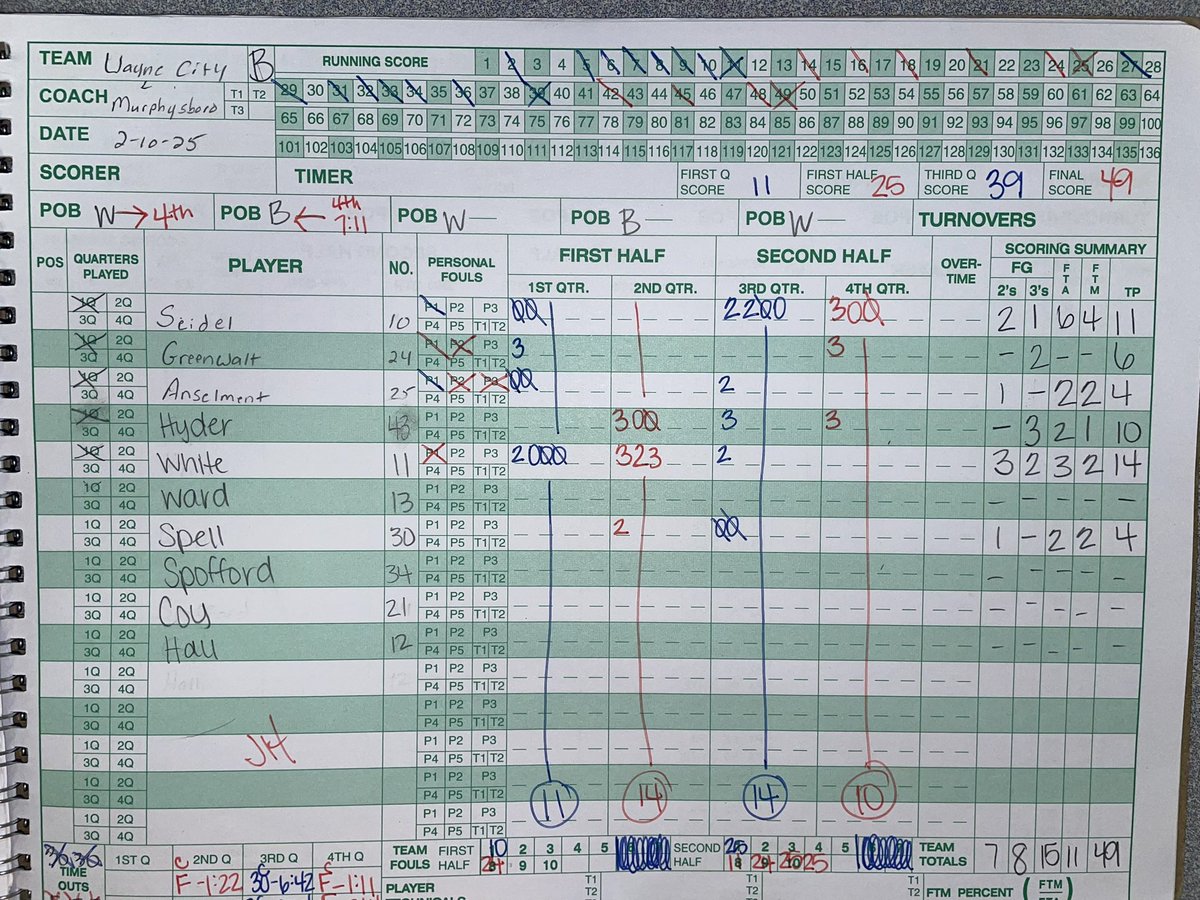 TEAM Wayne City B RUNNING SCORE 1 2 3 4 5 6 7 8 9 10 11 12 13 14 15 16 17 18 19 20 21 22 23 24 25 26 27 28
COACH Murphysboro T1 T2 T3 29 30 31 32 33 34 35 36 37 38 39 40 41 42 43 44 45 46 47 48 49 50 51 52 53 54 55 56 57 58 59 60 61 62 63 64
DATE 2-10-25 65 66 67 68 69 70 71 72 73 74 75 76 77 78 79 80 81 82 83 84 85 86 87 88 89 90 91 92 93 94 95 96 97 98 99 100
101 102 103 104 105 106 107 108 109 110 111 112 113 114 115 116 117 118 119 120 121 122 123 124 125 126 127 128 129 130 131 132 133 134 135 136
SCORER TIMER FIRST Q SCORE 11 FIRST HALF SCORE 25 THIRD Q SCORE 39 FINAL SCORE 49
POB W→4th POB B← 4th 7:11 POB W— POB B— POB W— TURNOVERS
POS QUARTERS PLAYED PLAYER NO. PERSONAL FOULS FIRST HALF SECOND HALF OVER-TIME SCORING SUMMARY
1ST QTR. 2ND QTR. 3RD QTR. 4TH QTR. FG 2's 3's FTA FTM TP
1Q 2Q 3Q 4Q Seidel 10 P1 P2 P3 P4 P5 T1 T2 00 2200 300 2 1 6 4 11
1Q 2Q 3Q 4Q Greenwalt 24 P1 P2 P3 P4 P5 T1 T2 3 3 - 2 - - 6
1Q 2Q 3Q 4Q Anselment 25 P1 P2 P3 P4 P5 T1 T2 00 2 1 - 2 2 4
1Q 2Q 3Q 4Q Hyder 43 P1 P2 P3 P4 P5 T1 T2 300 3 3 - 3 2 1 10
1Q 2Q 3Q 4Q White 11 P1 P2 P3 P4 P5 T1 T2 2000 323 2 3 2 3 2 14
1Q 2Q 3Q 4Q Ward 13 P1 P2 P3 P4 P5 T1 T2 - - - - -
1Q 2Q 3Q 4Q Spell 30 P1 P2 P3 P4 P5 T1 T2 2 00 1 - 2 2 4
1Q 2Q 3Q 4Q Spofford 34 P1 P2 P3 P4 P5 T1 T2 - - - - -
1Q 2Q 3Q 4Q Coy 21 P1 P2 P3 P4 P5 T1 T2 - - - - -
1Q 2Q 3Q 4Q Hall 12 P1 P2 P3 P4 P5 T1 T2 - - - - -
1Q 2Q 3Q 4Q P1 P2 P3 P4 P5 T1 T2
1Q 2Q 3Q 4Q P1 P2 P3 P4 P5 T1 T2
1Q 2Q 3Q 4Q JH P1 P2 P3 P4 P5 T1 T2
1Q 2Q 3Q 4Q P1 P2 P3 P4 P5 T1 T2
1Q 2Q 3Q 4Q P1 P2 P3 P4 P5 T1 T2 11 14 14 10
TIME OUTS 1ST Q 2ND Q 3RD Q 4TH Q TEAM FOULS FIRST HALF 10 2 3 4 5 24 9 10 SECOND HALF 25 2 3 4 5 TEAM TOTALS 7 8 15 11 49
F-1:22 30-6:42 F-1:11 PLAYER T1 T2 T1 T2 T1 T2 FTM PERCENT (FTM